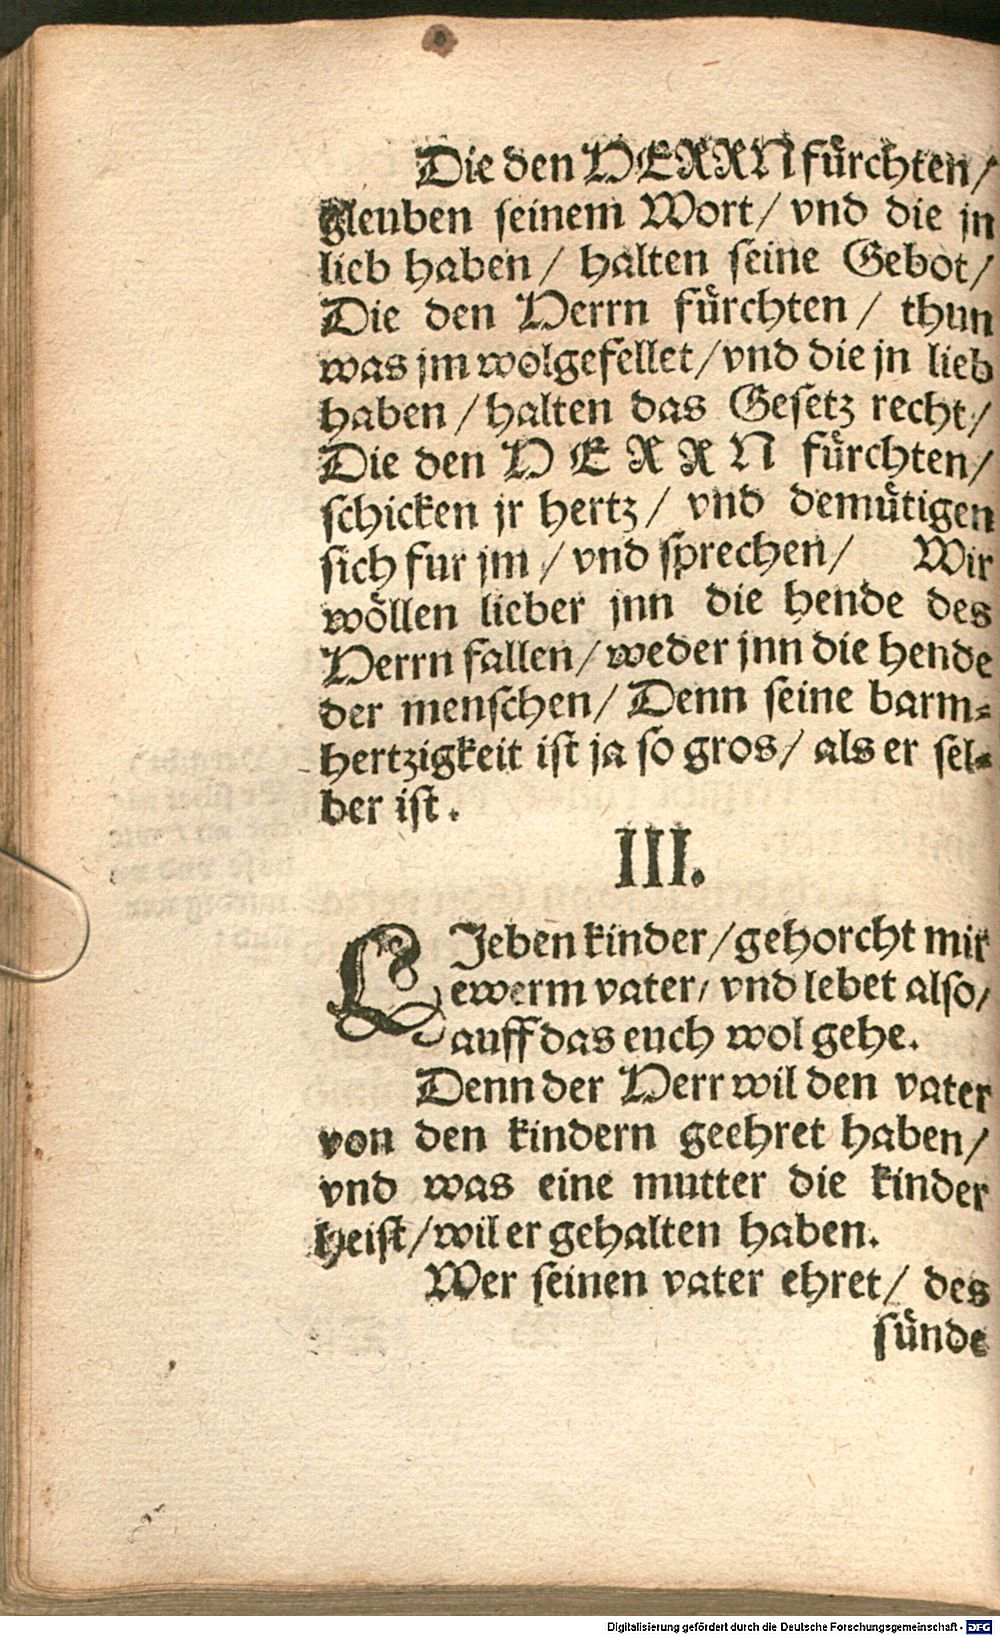 Die den HERRN fürchten /
gleuben seinem Wort / vnd die jn
lieb haben / halten seine Gebot /
Die den Herrn fürchten / thun
was jm wolgefellet / vnd die jn lieb
haben / halten das Gesetz recht /
Die den HERRN fürchten /
schicken jr hertz / vnd demütigen
sich fur jm / vnd sprechen / Wir
wöllen lieber jnn die hende des
Herrn fallen / weder jnn die hende
der menschen / Denn seine barm=
hertzigkeit ist ja so gros / als er sel=
ber ist.
III.
LJeben kinder / gehorcht mir
ewerm vater / vnd lebet also /
auff das euch wol gehe.
Denn der Herr wil den vater
von den kindern geehret haben /
vnd was eine mutter die kinder
heist / wil er gehalten haben.
Wer seinen vater ehret / des
sünde
Digitalisierung gefördert durch die Deutsche Forschungsgemeinschaft - DFG